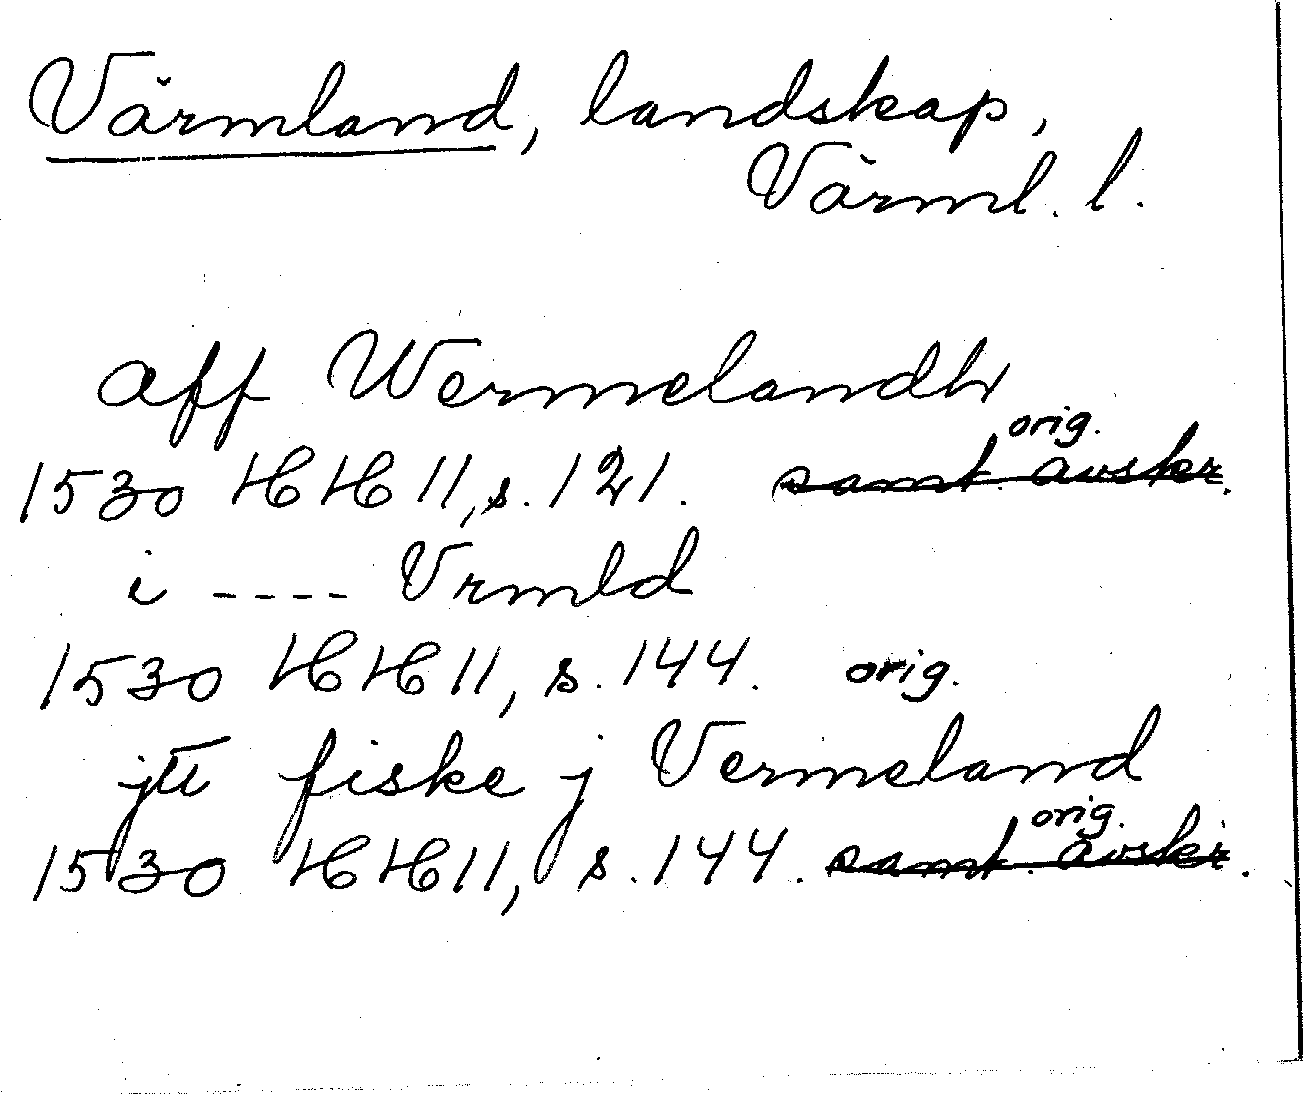 Värmland, landskap,
Värml. l.
aff Wermelandh
orig.
1530 HH 11, s. 121. samt. avskr.
i ---- Vrmld
1530 HH 11, s. 144. orig.
jtt fiske j Vermeland
orig.
1530 HH 11, s. 144. samt. avskr.